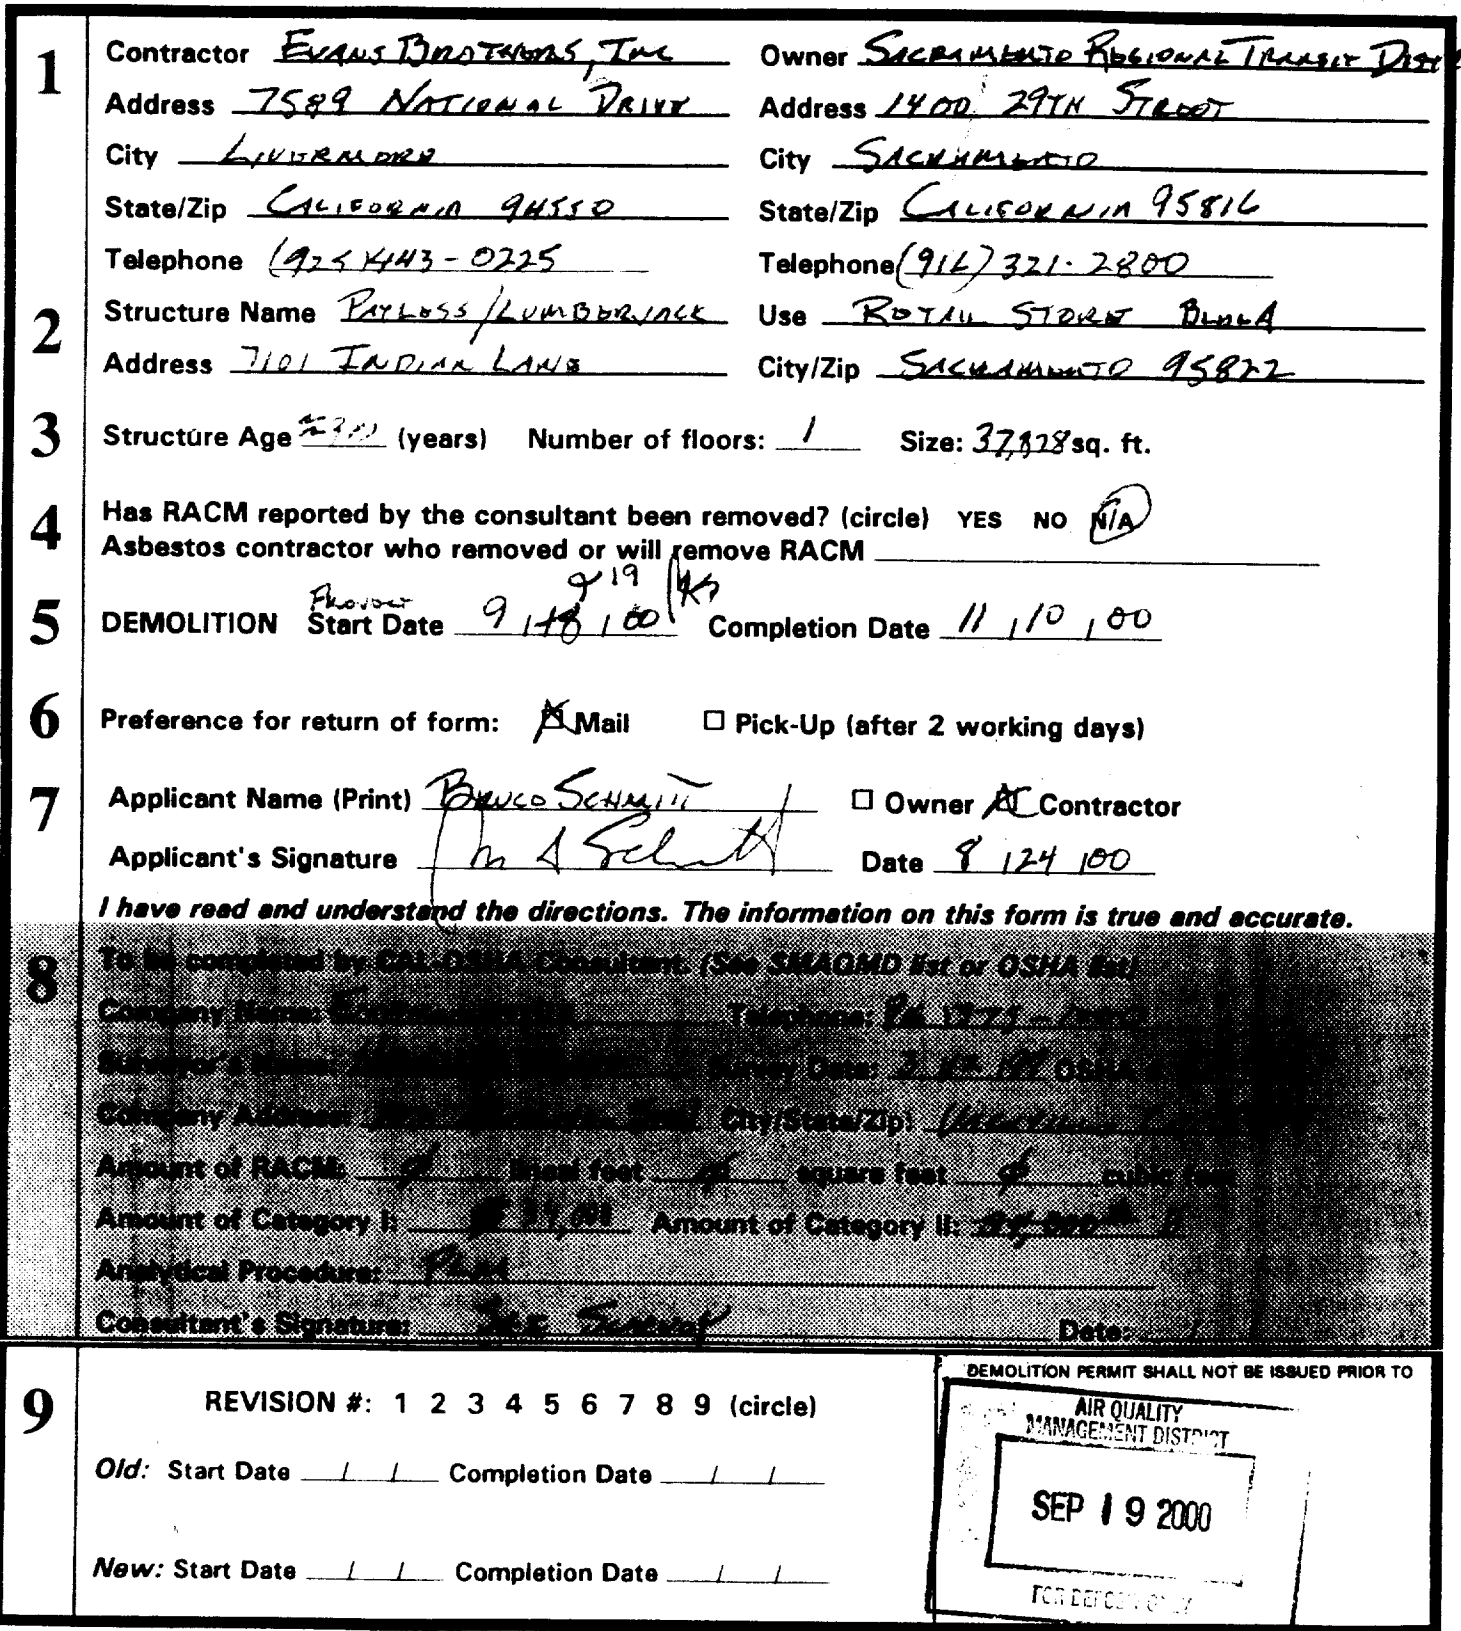 1
Contractor Evans Brothers, Inc Owner Sacramento Regional Transit Dist
Address 7589 National Drive Address 1400 29th Street
City Livermore City Sacramento
State/Zip California 94550 State/Zip California 95816
Telephone (925)443-0225 Telephone (916)321-2800
2
Structure Name Payless/Lumberjack Use Retail Store Bldg A
Address 7101 Indian Lane City/Zip Sacramento 95822
3
Structure Age ≈30 (years) Number of floors: 1 Size: 37,828 sq. ft.
4
Has RACM reported by the consultant been removed? (circle) YES NO N/A
Asbestos contractor who removed or will remove RACM
19
5
DEMOLITION Start Date 9/18/00 Completion Date 11/10/00
6
Preference for return of form: Mail Pick-Up (after 2 working days)
7
Applicant Name (Print) Bruce Schmitt Owner Contractor
Applicant's Signature Date 8/24/00
I have read and understand the directions. The information on this form is true and accurate.
8
To be completed by CAL-OSHA Consultant. (See SMAQMD list or OSHA list)
Company Name: Telephone:
Surveyor's Name: Survey Date: OSHA
Company Address: City/State/Zip:
Amount of RACM: ø lineal feet ø square feet ø cubic feet
Amount of Category I: Amount of Category II:
Analytical Procedure: PLM
Consultant's Signature: Date:
9
REVISION #: 1 2 3 4 5 6 7 8 9 (circle)
Old: Start Date / / Completion Date / /
New: Start Date / / Completion Date / /
DEMOLITION PERMIT SHALL NOT BE ISSUED PRIOR TO
AIR QUALITY
MANAGEMENT DISTRICT
SEP 19 2000
FOR DEPOSIT ONLY